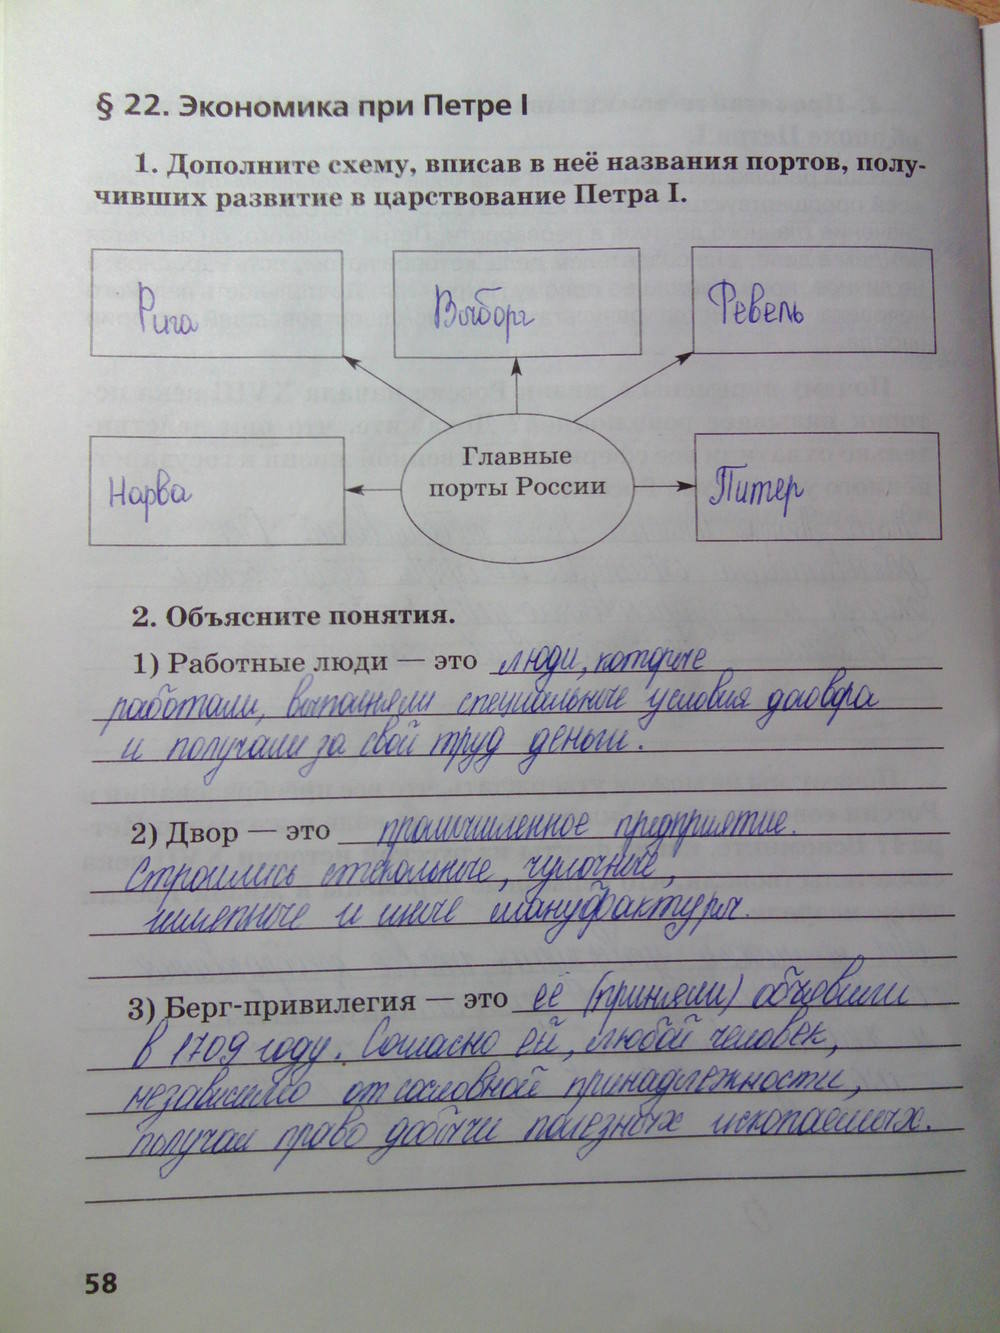 § 22. Экономика при Петре I
1. Дополните схему, вписав в неё названия портов, полу-
чивших развитие в царствование Петра I.
Рига
Выборг
Ревель
Главные
порты России
Нарва
Питер
2. Объясните понятия.
1) Работные люди — это люди, которые
работали, выполняли специальные условия договора
и получали за свой труд деньги.
2) Двор — это промышленное предприятие.
Строились стекольные, чулочные,
шляпные и иные мануфактуры.
3) Берг-привилегия — это её (приняли) объявили
в 1709 году. Согласно ей, любой человек,
независимо от сословной принадлежности,
получал право добычи полезных ископаемых.
58